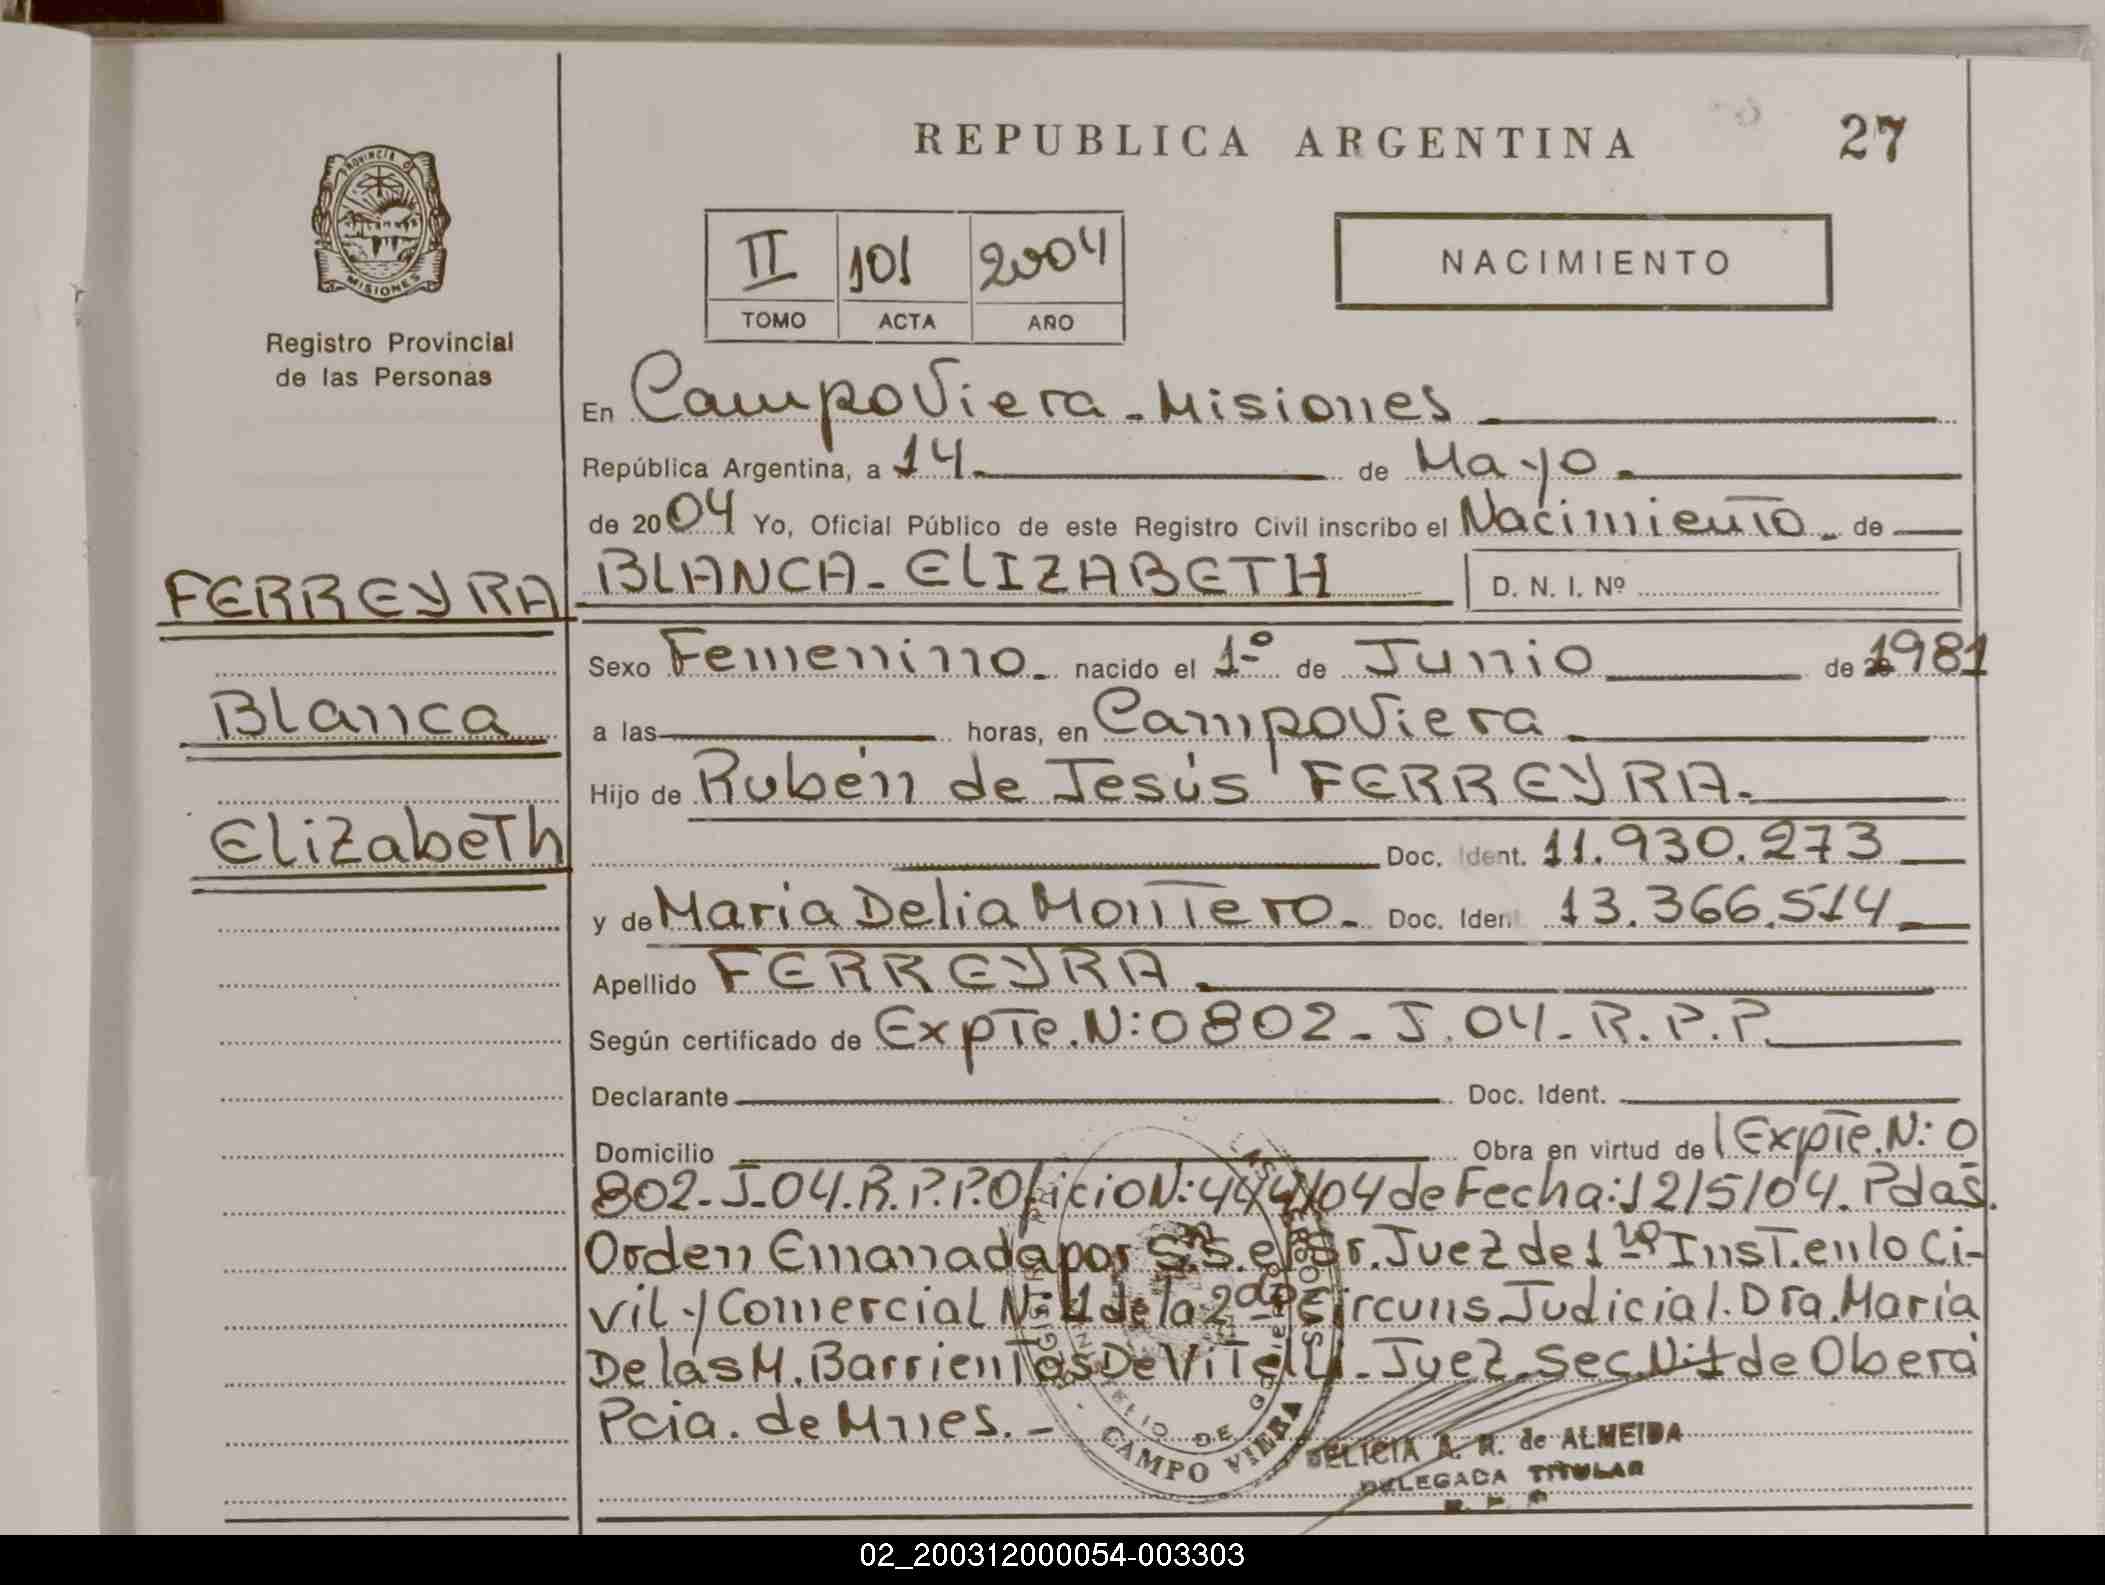 REPUBLICA ARGENTINA
27
PROVINCIA D
MISIONES
Registro Provincial
de las Personas
II 101 2004
TOMO ACTA AÑO
NACIMIENTO
En Campo Viera - Misiones
República Argentina, a 14 de Mayo
de 2004 Yo, Oficial Público de este Registro Civil inscribo el Nacimiento de
FERREYRA
Blanca
Elizabeth
BLANCA - ELIZABETH
D. N. I. Nº
Sexo Femenino nacido el 1º de Junio de 1981
a las horas, en Campo Viera
Hijo de Rubén de Jesús FERREYRA.
Doc. Ident. 11.930.273
y de Maria Delia Montero. Doc. Iden 13.366.514
Apellido FERREYRA
Según certificado de Expte. N: 0802 - J. 04 - R. P. P.
Declarante Doc. Ident.
Domicilio Obra en virtud de Expte. N: 0
802 - J - 04. R. P. P. Oficio N: 444/04 de Fecha: 12/5/04. Pdas.
Orden Emanada por S.S. el Sr. Juez de 1ra Inst. en lo Ci-
vil y Comercial N: 1 de la 2da Circuns. Judicial. Dra. Maria
De las M. Barrientos De Vitelli - Juez. Sec. N: 1 de Oberá
Pcia. de Mnes. -
CAMPO VIERA
DELICIA A. R. de ALMEIDA
DELEGADA TITULAR
R. P. P.
02_200312000054-003303